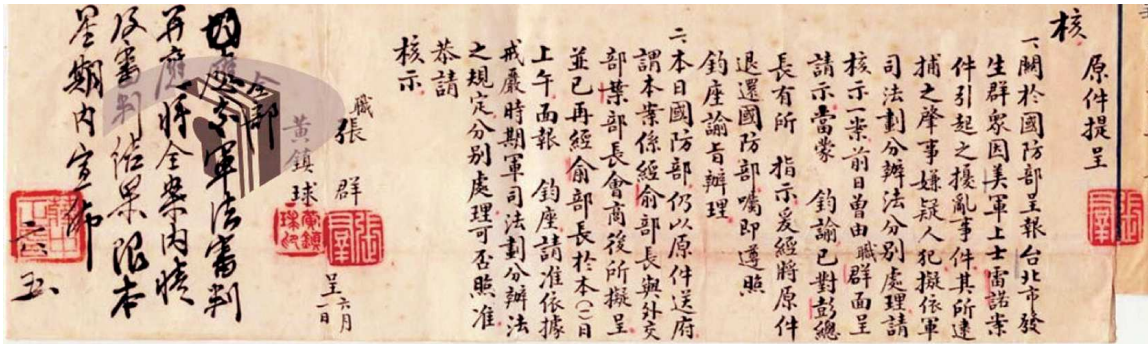 原件提呈
核
一、關於國防部呈報台北市發
生群眾因美軍上士雷諾案
件引起之擾亂事件其所逮
捕之肇事嫌疑人犯擬依軍
司法劃分辦法分別處理請
核示一案前日曾由職群面呈
請示當蒙 鈞諭已對彭總
長有所 指示爰經將原件
退還國防部囑即遵照
鈞座諭旨辦理
二、本日國防部仍以原件送府
謂本案係經俞部長與外交
部葉部長會商後所擬呈
並已再經俞部長於本(一)日
上午面報 鈞座請准依據
戒嚴時期軍司法劃分辦法
之規定分別處理可否照准
恭請
核示
職張 群
黃鎮球
呈 六月一日
軍法審判
并應將全案內情
及審判結果限本
星期內宣佈
六五